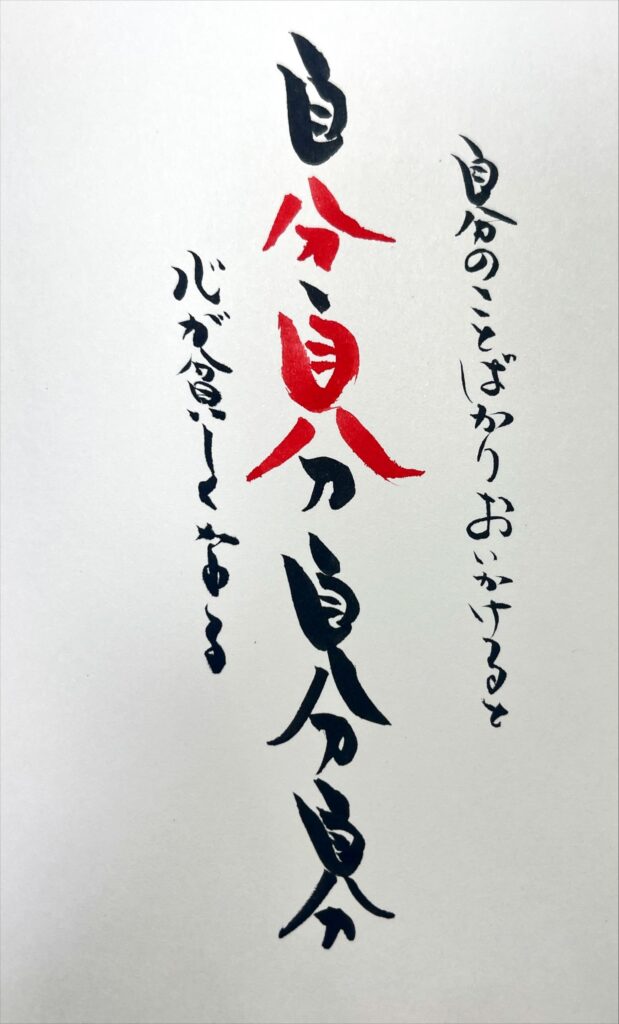 自分のことばかりおいかけると
自分自分自分自分
心が貧しくなる